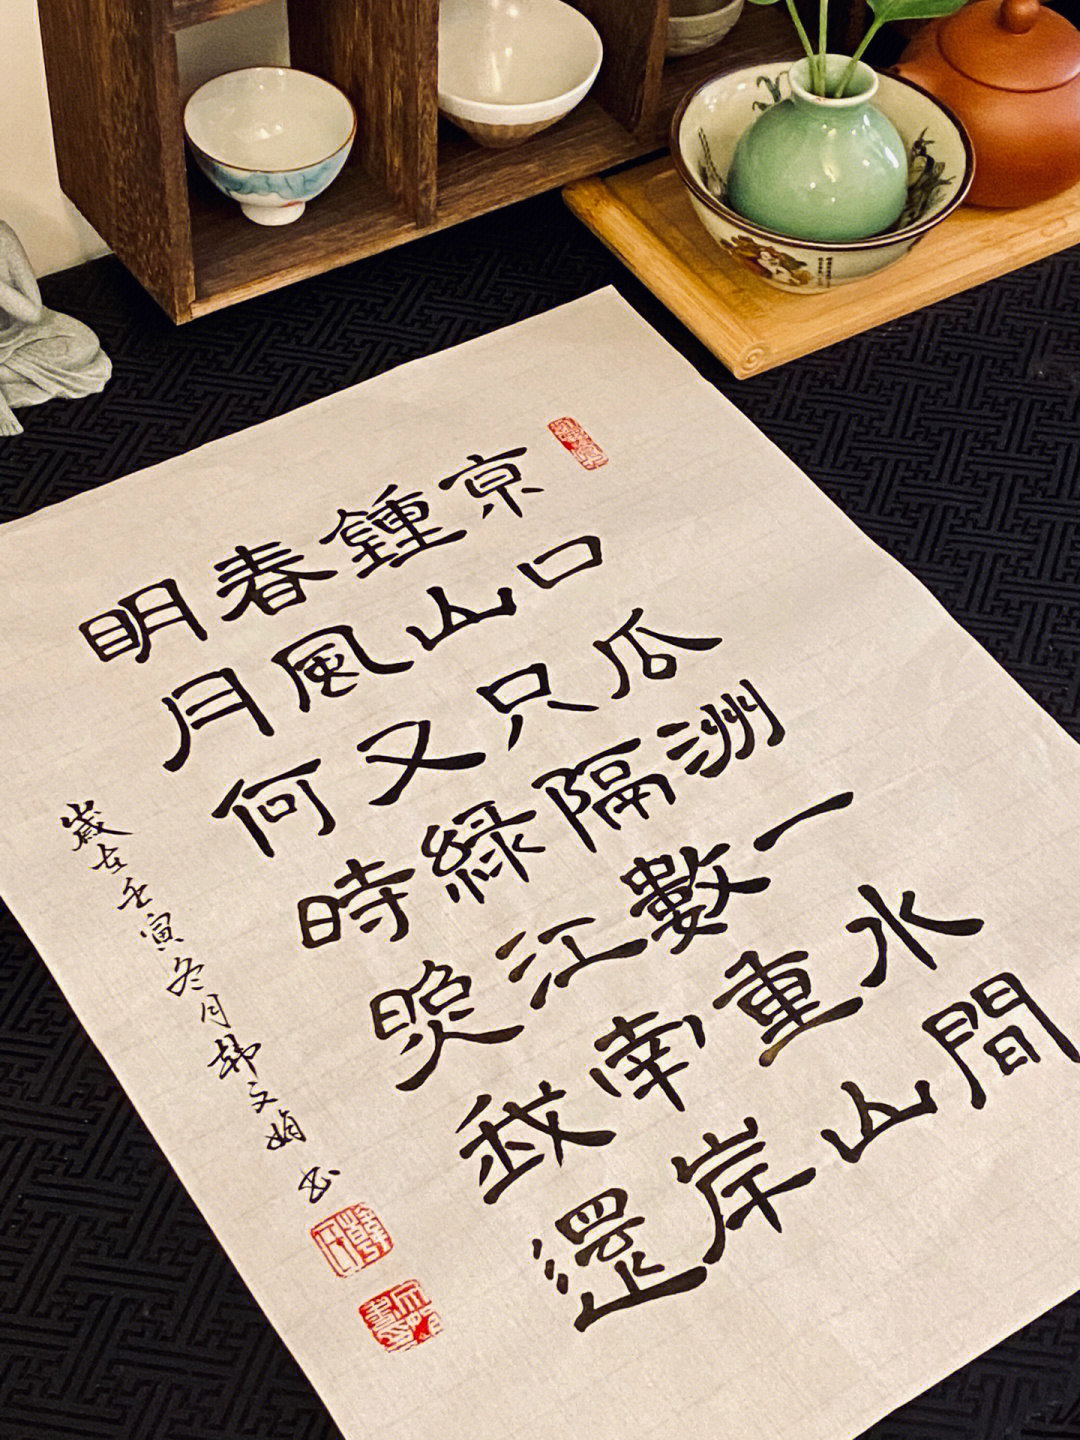 京口瓜洲一水間
鍾山只隔數重山
春風又綠江南岸
明月何時照我還
歲在壬寅冬月韩文娟书